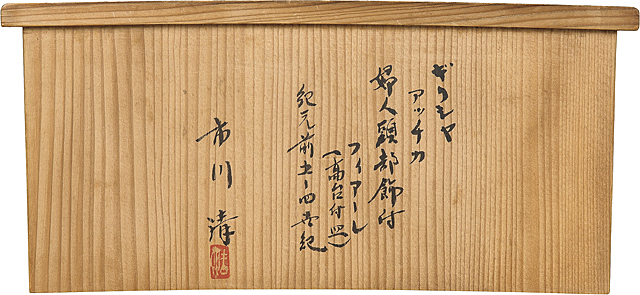 ギリシヤ
アッチカ
婦人頭部飾付
フィアーレ
(高台付皿)
紀元前五〜四世紀
市川 清